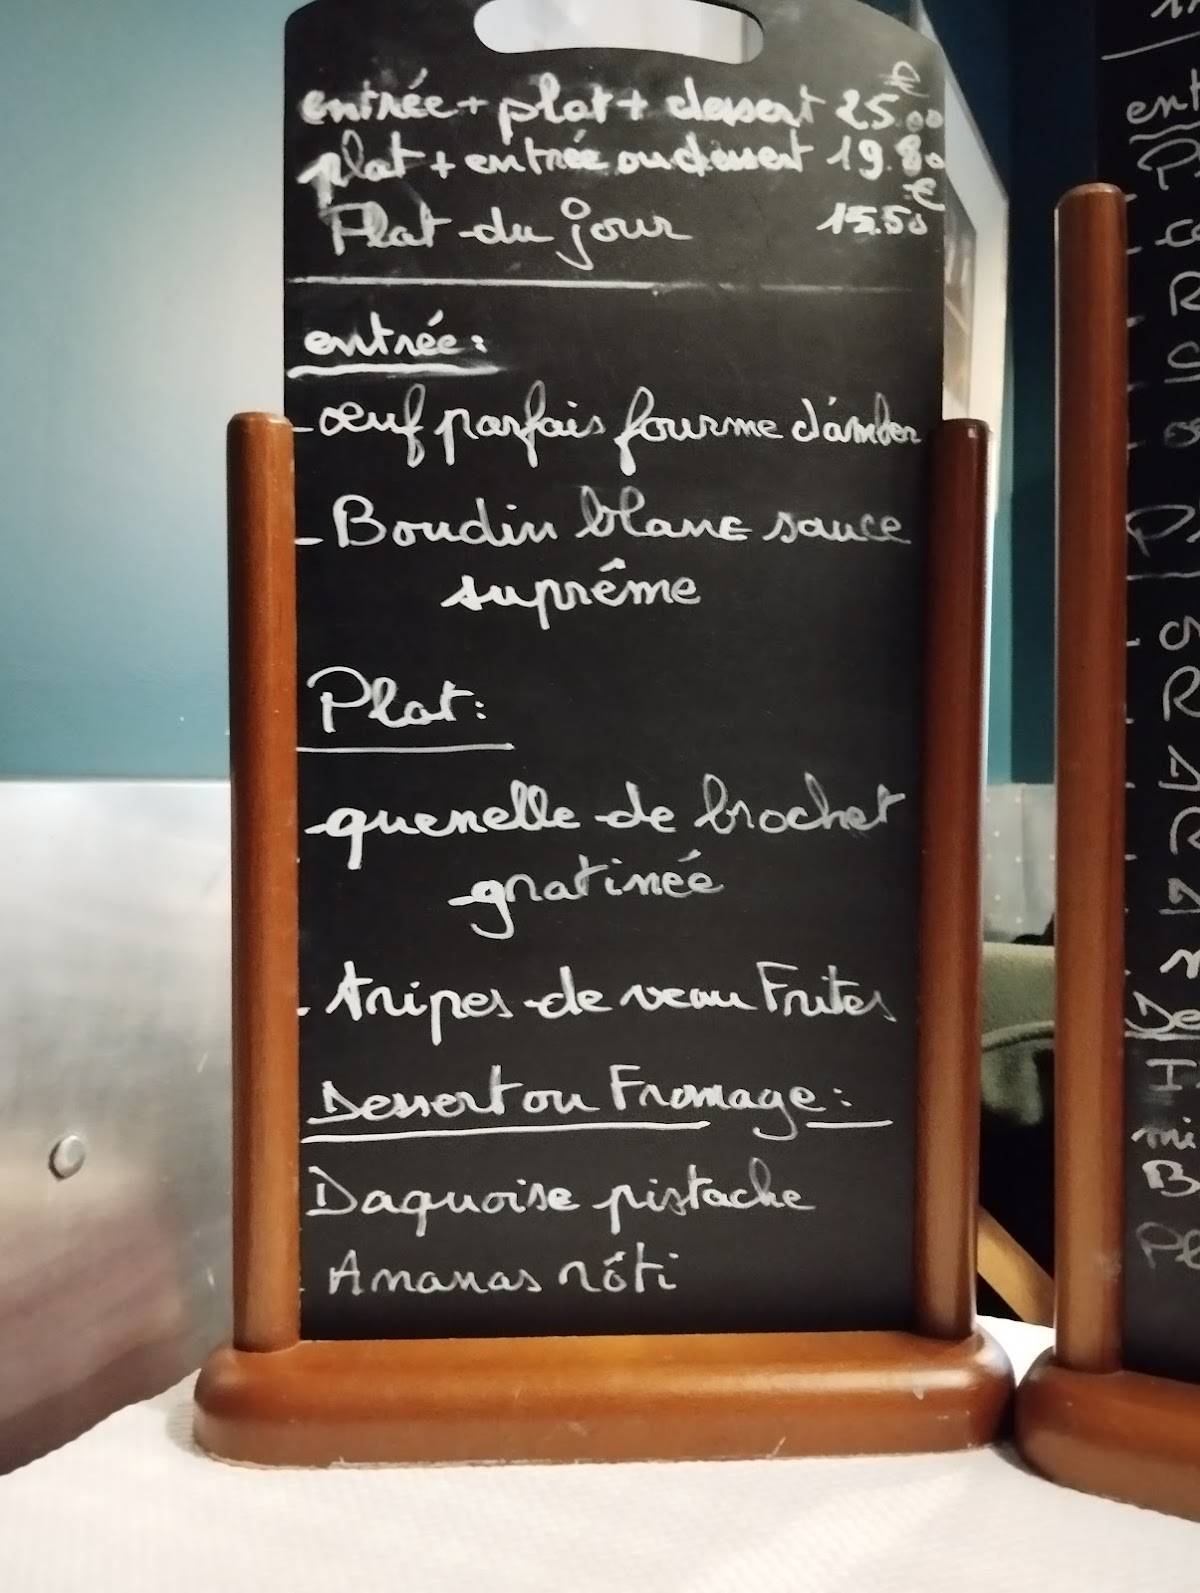 entrée + plat + dessert 25.00 €
plat + entrée ou dessert 19.80
Plat du jour 15.50 €
entrée:
- œuf parfais fourme d'amber
- Boudin blanc sauce
suprême
Plat:
- quenelle de brochet
gratinée
- tripes de veau Frites
Dessert ou Fromage:
Daquoise pistache
Ananas rôti
ent
De
mi